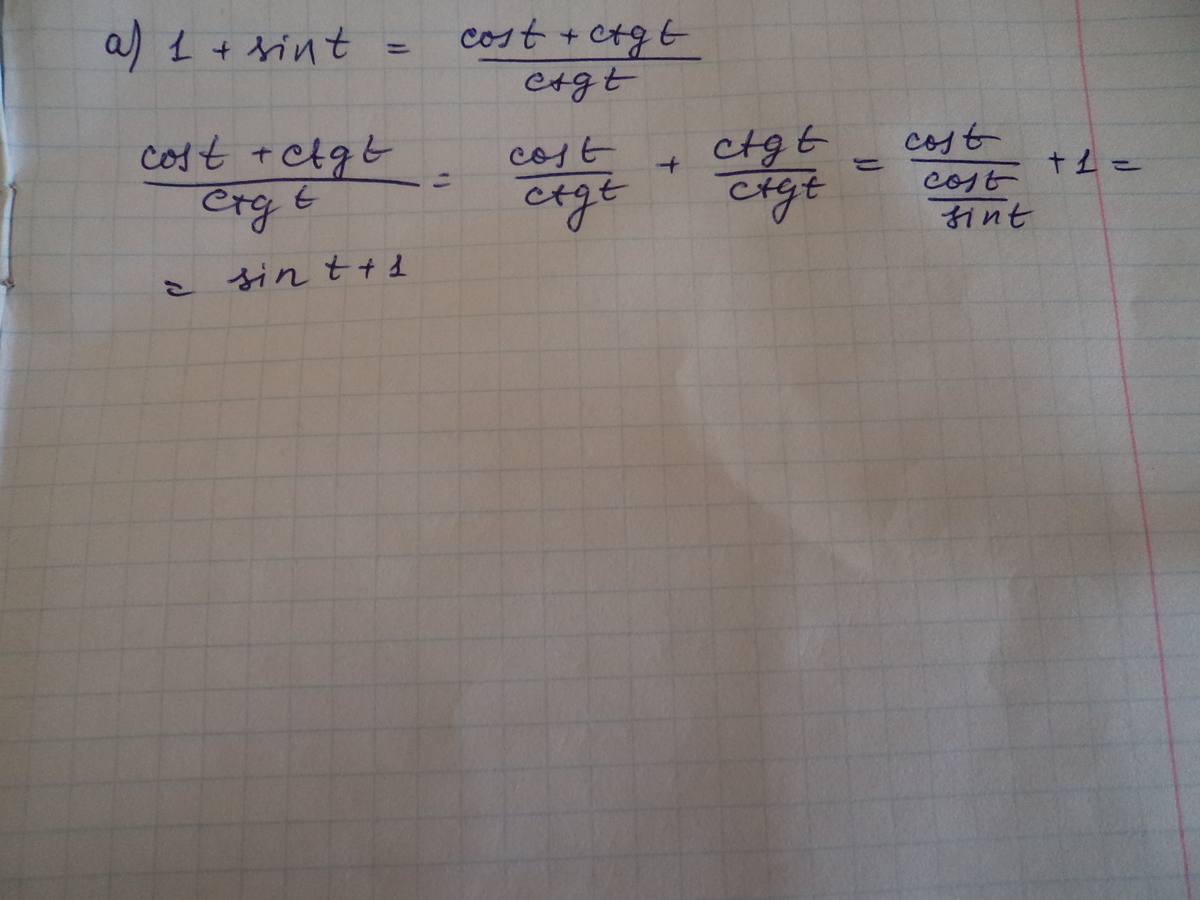 а) 1 + sin t = (cos t + ctg t) / (ctg t)
(cos t + ctg t) / (ctg t) = (cos t) / (ctg t) + (ctg t) / (ctg t) = (cos t) / ((cos t) / (sin t)) + 1 =
= sin t + 1